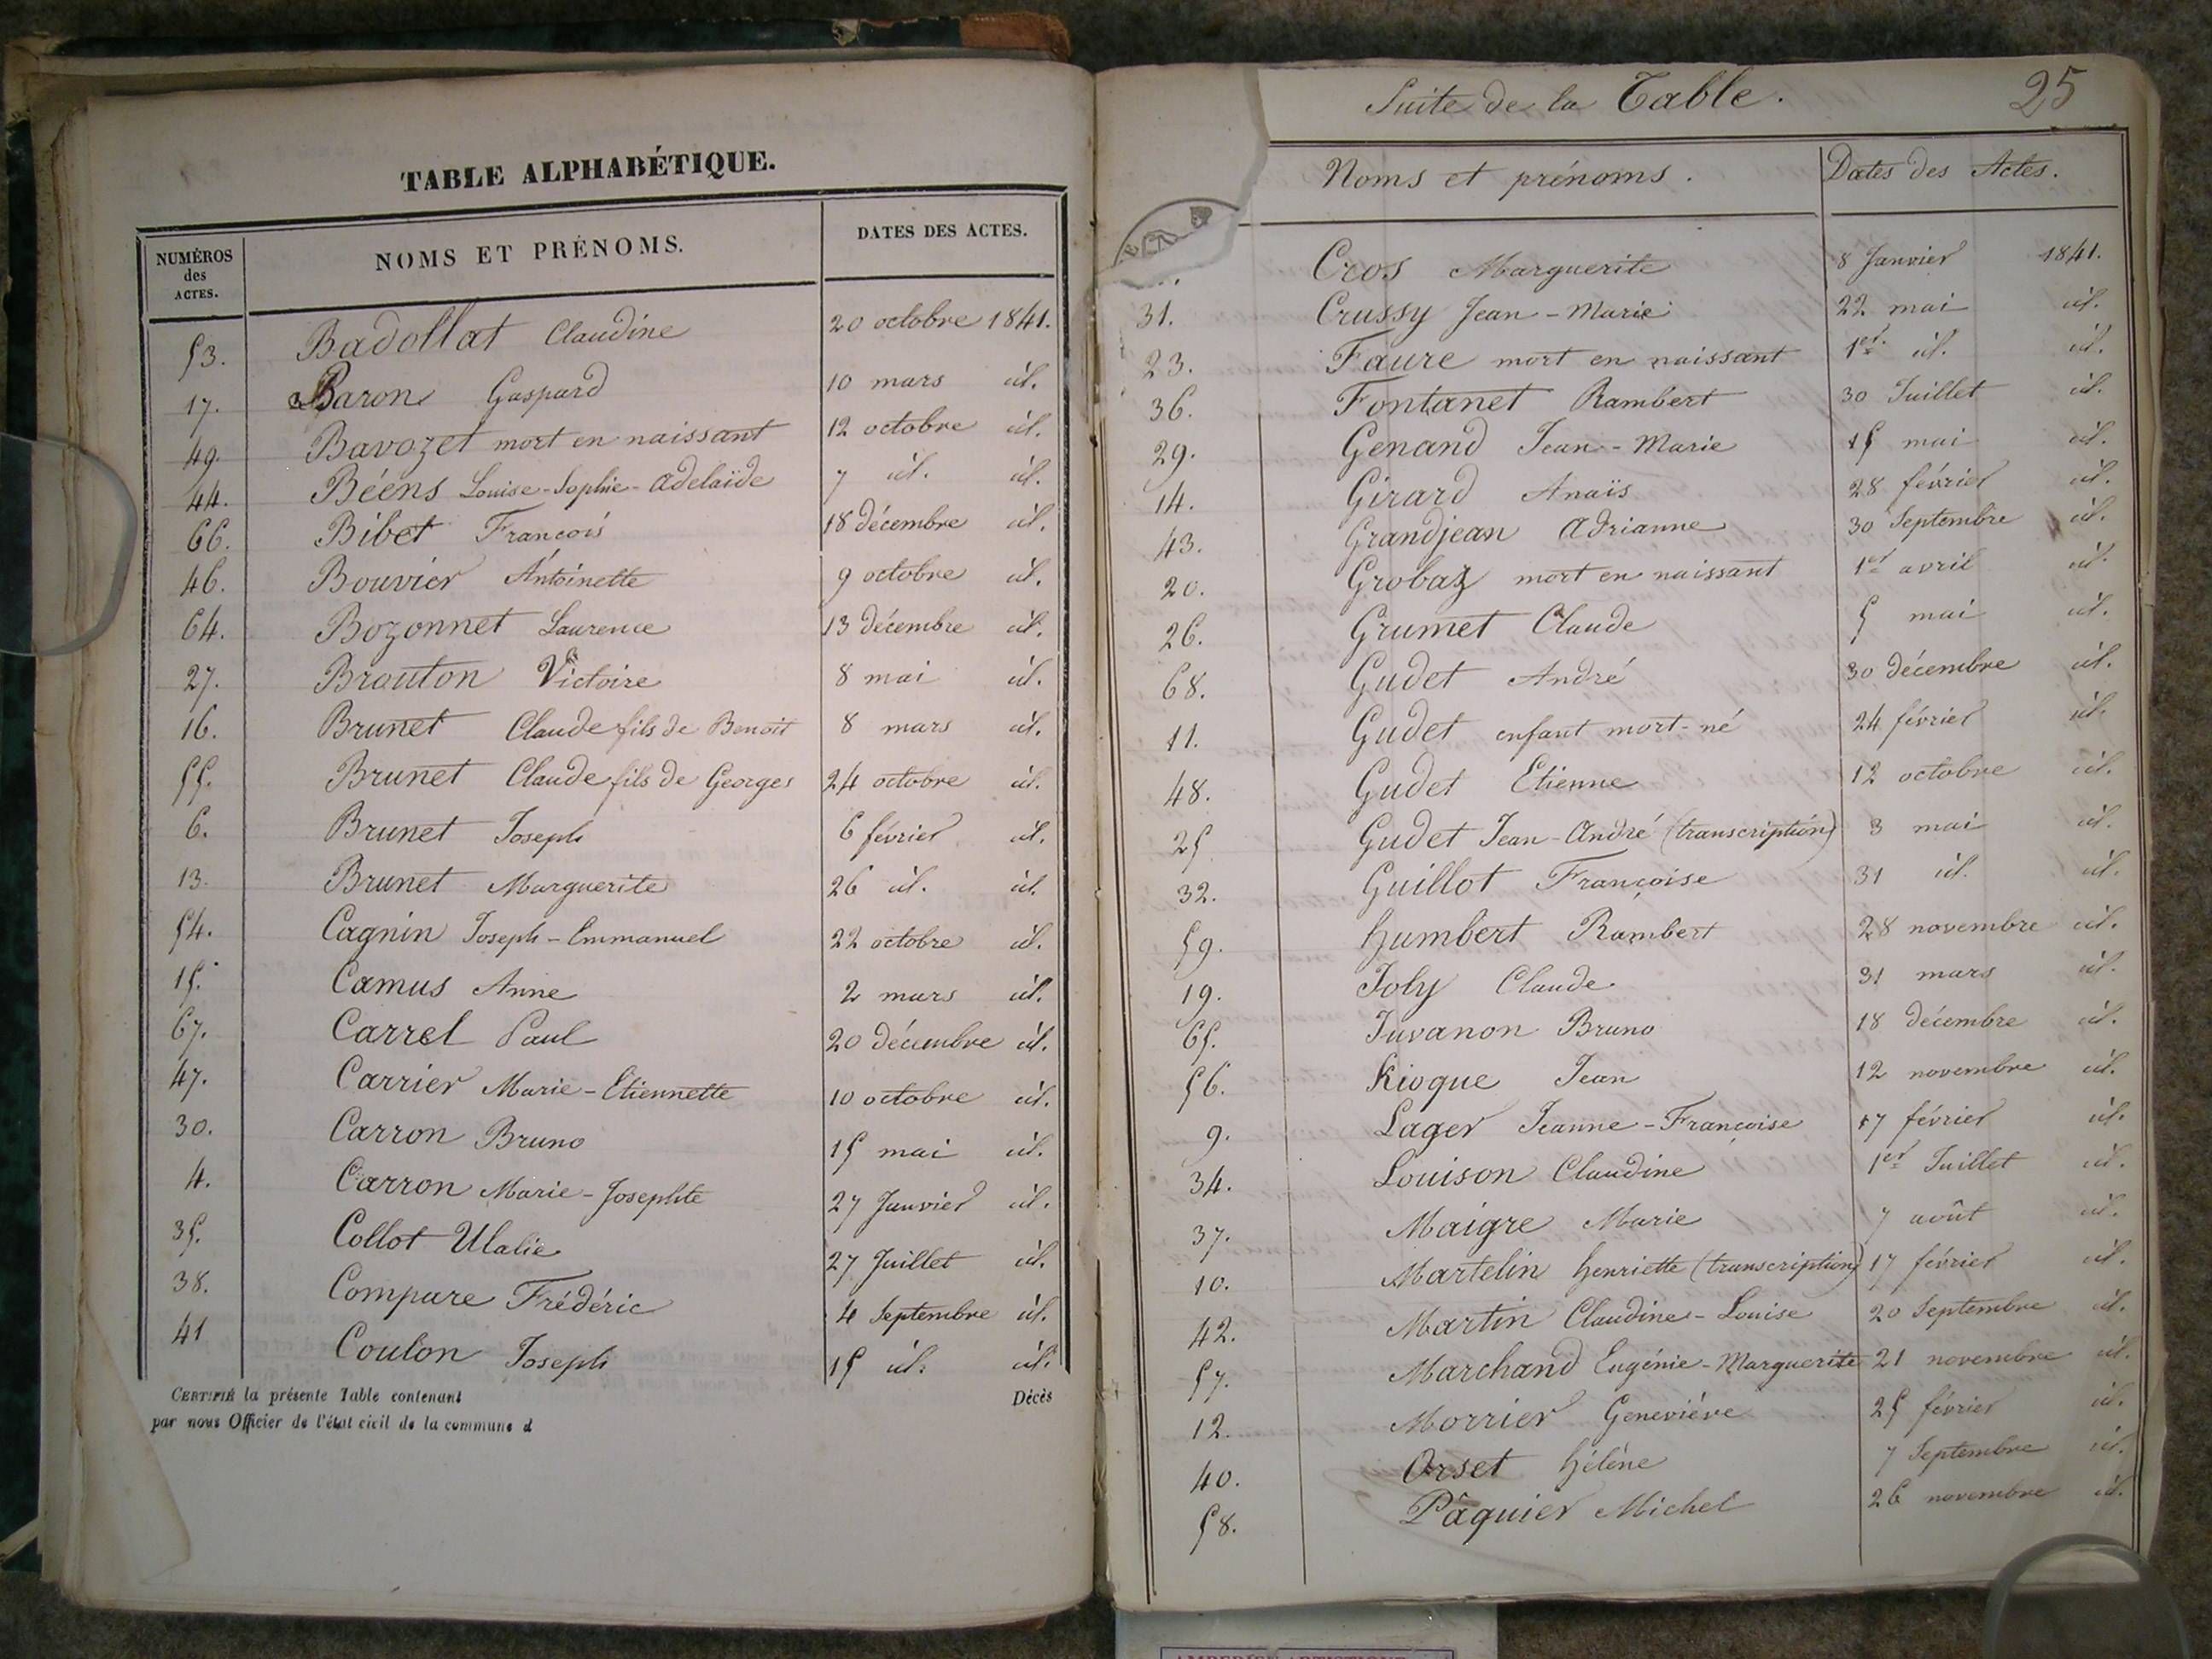 TABLE ALPHABÉTIQUE.
NUMÉROS des ACTES. NOMS ET PRÉNOMS. DATES DES ACTES.
53. Badollat Claudine 20 octobre 1841.
17. Baron Gaspard 10 mars id.
49. Bavozet mort en naissant 12 octobre id.
44. Béens Louise-Sophie-Adelaïde 7 id. id.
66. Bibet François 18 décembre id.
46. Bouvier Antoinette 9 octobre id.
64. Bozonnet Laurence 13 décembre id.
27. Brouton Victoire 8 mai id.
16. Brunet Claude fils de Benoit 8 mars id.
55. Brunet Claude fils de Georges 24 octobre id.
6. Brunet Joseph 6 février id.
13. Brunet Marguerite 26 id. id.
54. Cagnin Joseph-Emmanuel 22 octobre id.
15. Camus Anne 2 mars id.
67. Carrel Paul 20 décembre id.
47. Carrier Marie-Etiennette 10 octobre id.
30. Carron Bruno 15 mai id.
4. Carron Marie-Josephte 27 Janvier id.
35. Collot Ulalie 27 Juillet id.
38. Compare Frédéric 4 Septembre id.
41 Coulon Joseph 15 id. id.
CERTIFIÉ la présente Table contenant Décès
par nous Officier de l'état civil de la commune d
Suite de la Table. 25
Noms et prénoms. Dates des Actes.
Cros Marguerite 8 Janvier 1841.
31. Crussy Jean-Marie 22 mai id.
23. Faure mort en naissant 1er id. id.
36. Fontanet Rambert 30 Juillet id.
29. Genand Jean-Marie 15 mai id.
14. Girard Anaïs 28 février id.
43. Grandjean Adrianne 30 Septembre id.
20. Grobaz mort en naissant 1er avril id.
26. Grumet Claude 5 mai id.
68. Gudet André 30 décembre id.
11. Gudet enfant mort-né 24 février id.
48. Gudet Etienne 12 octobre id.
25 Gudet Jean-André (transcription) 3 mai id.
32. Guillot Françoise 31 id. id.
59. Humbert Rambert 28 novembre id.
19. Joly Claude 31 mars id.
65. Juvanon Bruno 18 décembre id.
56. Kioque Jean 12 novembre id.
9. Lager Jeanne-Françoise 17 février id.
34. Louison Claudine 1er Juillet id.
37. Maigre Marie 7 août id.
10. Martelin henriette (transcription) 17 février id.
42. Martin Claudine-Louise 20 Septembre id.
57. Marchand Eugénie-Marguerite 21 novembre id.
12. Morrier Geneviéve 25 février id.
40. Orset hélène 7 Septembre id.
58. Pâquier Michel 26 novembre id.